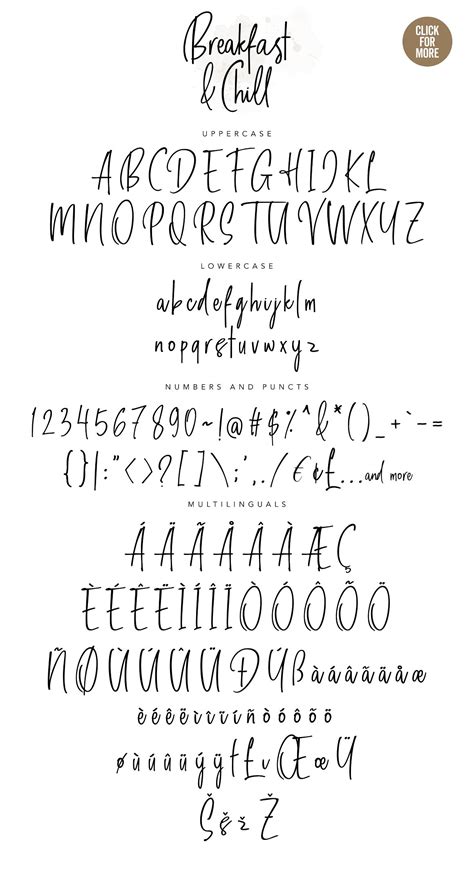 Breakfast
& Chill
CLICK
FOR
MORE
UPPERCASE
ABCDEFGHIJKL
MNOPQRSTUVWXYZ
LOWERCASE
abcdefghijklm
nopqrstuvwxyz
NUMBERS AND PUNCTS
1234567890~!@#$%^&*()_+`-=
{}|:"<>?[]\;',./€¢£...and more
MULTILINGUALS
ÁÄÃÅÂÀÆÇ
ÈÉÊËÌÍÎÏÒÓÔÕÖ
ÑØÙÚÛÜÐÝßàáâãäåæ
èéêëìïîíñòóôõö